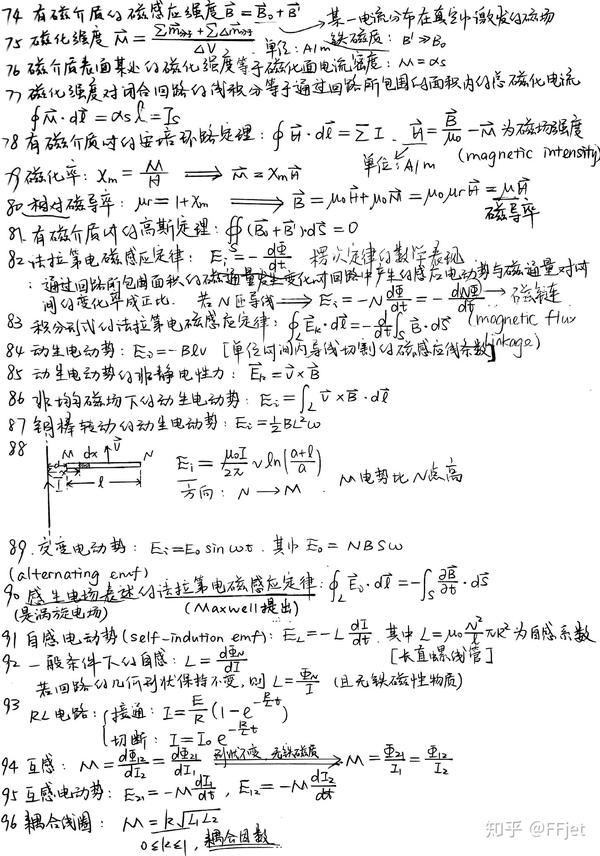 74 有磁介质的磁感应强度 B⃗ = B⃗₀ + B⃗' → 某一电流分布在真空中激发的磁场
铁磁质: B' ≫ B₀
75 磁化强度 M⃗ = (Σm⃗分子 + ΣΔm⃗分子)/ΔV, 单位: A/m
76 磁介质表面某处的磁化强度等于磁化面电流密度: M = αs
77 磁化强度对闭合回路的线积分等于通过回路所包围的面积内的总磁化电流
∮M⃗·dl⃗ = αs l = Is
78 有磁介质时的安培环路定理: ∮H⃗·dl⃗ = ΣI. H⃗ = B⃗/μ₀ − M⃗ 为磁场强度
单位: A/m (magnetic intensity)
79 磁化率: Xm = M/H ⟹ M⃗ = XmH⃗
80 相对磁导率: μr = 1+Xm ⟹ B⃗ = μ₀H⃗ + μ₀M⃗ = μ₀μrH⃗ = μH⃗
磁导率
81. 有磁介质时的高斯定理: ∯S (B⃗₀ + B⃗')·dS⃗ = 0
82 法拉第电磁感应定律: Ei = −dΦ/dt 楞次定律的数学表现
: 通过回路所包围面积的磁通量发生变化时回路中产生的感应电动势与磁通量对时
间的变化率成正比. 若N匝导线 ⟹ Ei = −N dΦ/dt = − dNΦ/dt → 磁链
83 积分形式的法拉第电磁感应定律: ∮L E⃗k·dl⃗ = −d/dt ∫S B⃗·dS⃗ (magnetic flux
linkage)
84 动生电动势: Ei = −Blv [单位时间内导线切割的磁感应线条数]
85 动生电动势的非静电性力: E⃗k = v⃗×B⃗
86 非均匀磁场下的动生电动势: Ei = ∫L v⃗×B⃗·dl⃗
87 铜棒转动的动生电动势: Ei = ½BL²ω
88
M dx v⃗ N
a
I l
Ei = μ₀I/2π v ln((a+l)/a)
方向: N → M
M电势比N点高
89. 交变电动势: Ei = E₀ sin ωt. 其中 E₀ = NBSω
(alternating emf)
90 感生电场表述的法拉第电磁感应定律: ∮L E⃗·dl⃗ = −∫S ∂B⃗/∂t·dS⃗
(是涡旋电场) (Maxwell提出)
91 自感电动势 (self-indution emf): EL = −L dI/dt. 其中 L = μ₀ N²/l πR² 为自感系数
[长直螺线管]
92 一般条件下的自感: L = dΦN/dI
若回路的几何形状保持不变, 则 L = ΦN/I (且无铁磁性物质)
93 RL电路: 接通: I = E/R (1−e^(−R/L t))
切断: I = I₀ e^(−R/L t)
94 互感: M = dΦ12/dI2 = dΦ21/dI1 形状不变, 无铁磁质 → M = Φ21/I1 = Φ12/I2
95 互感电动势: E21 = −M dI1/dt, E12 = −M dI2/dt
96 耦合线圈: M = k√(L1L2)
0≤k≤1, 耦合因数
知乎 @FFjet